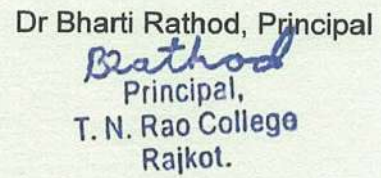 Dr Bharti Rathod, Principal
BRathod
Principal,
T. N. Rao College
Rajkot.